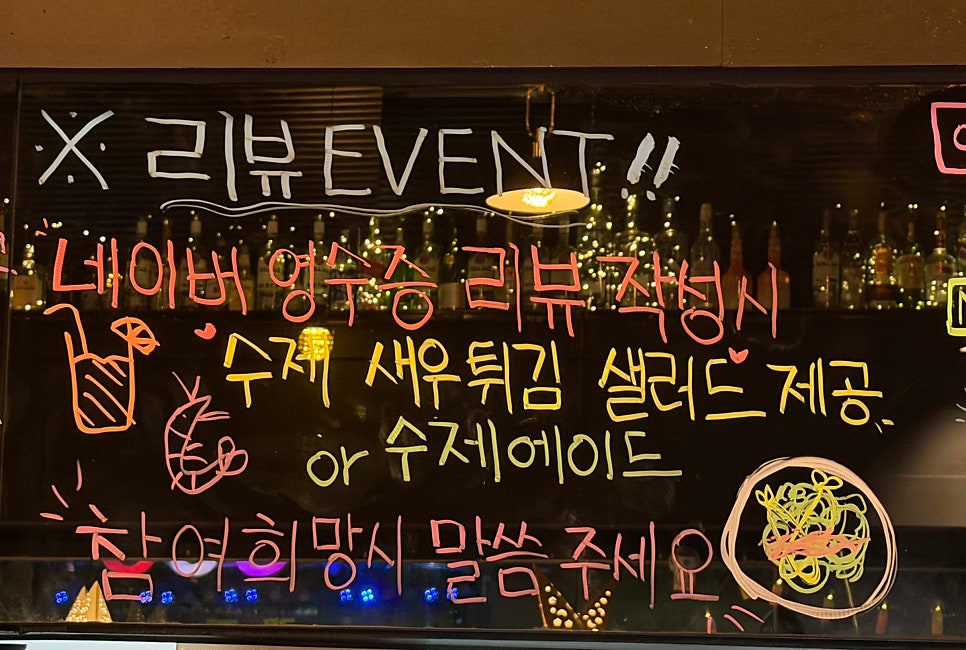 ※ 리뷰 EVENT!!
네이버 영수증 리뷰 작성시
수제 새우튀김 샐러드 제공
or 수제에이드
참여희망시 말씀 주세요